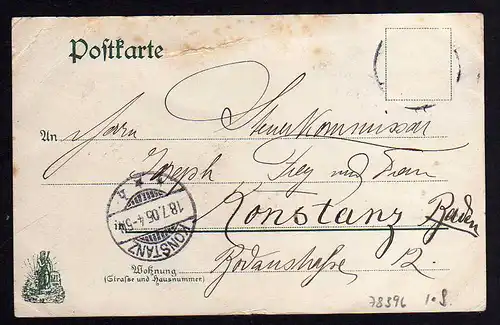 Postkarte
An Herrn Steuerkommissar
Joseph Frey und Frau
KONSTANZ
18.7.06.4-5N
in Konstanz Baden
Wohnung
(Straße und Hausnummer)
Bodanstraße 12.
78396 1.8